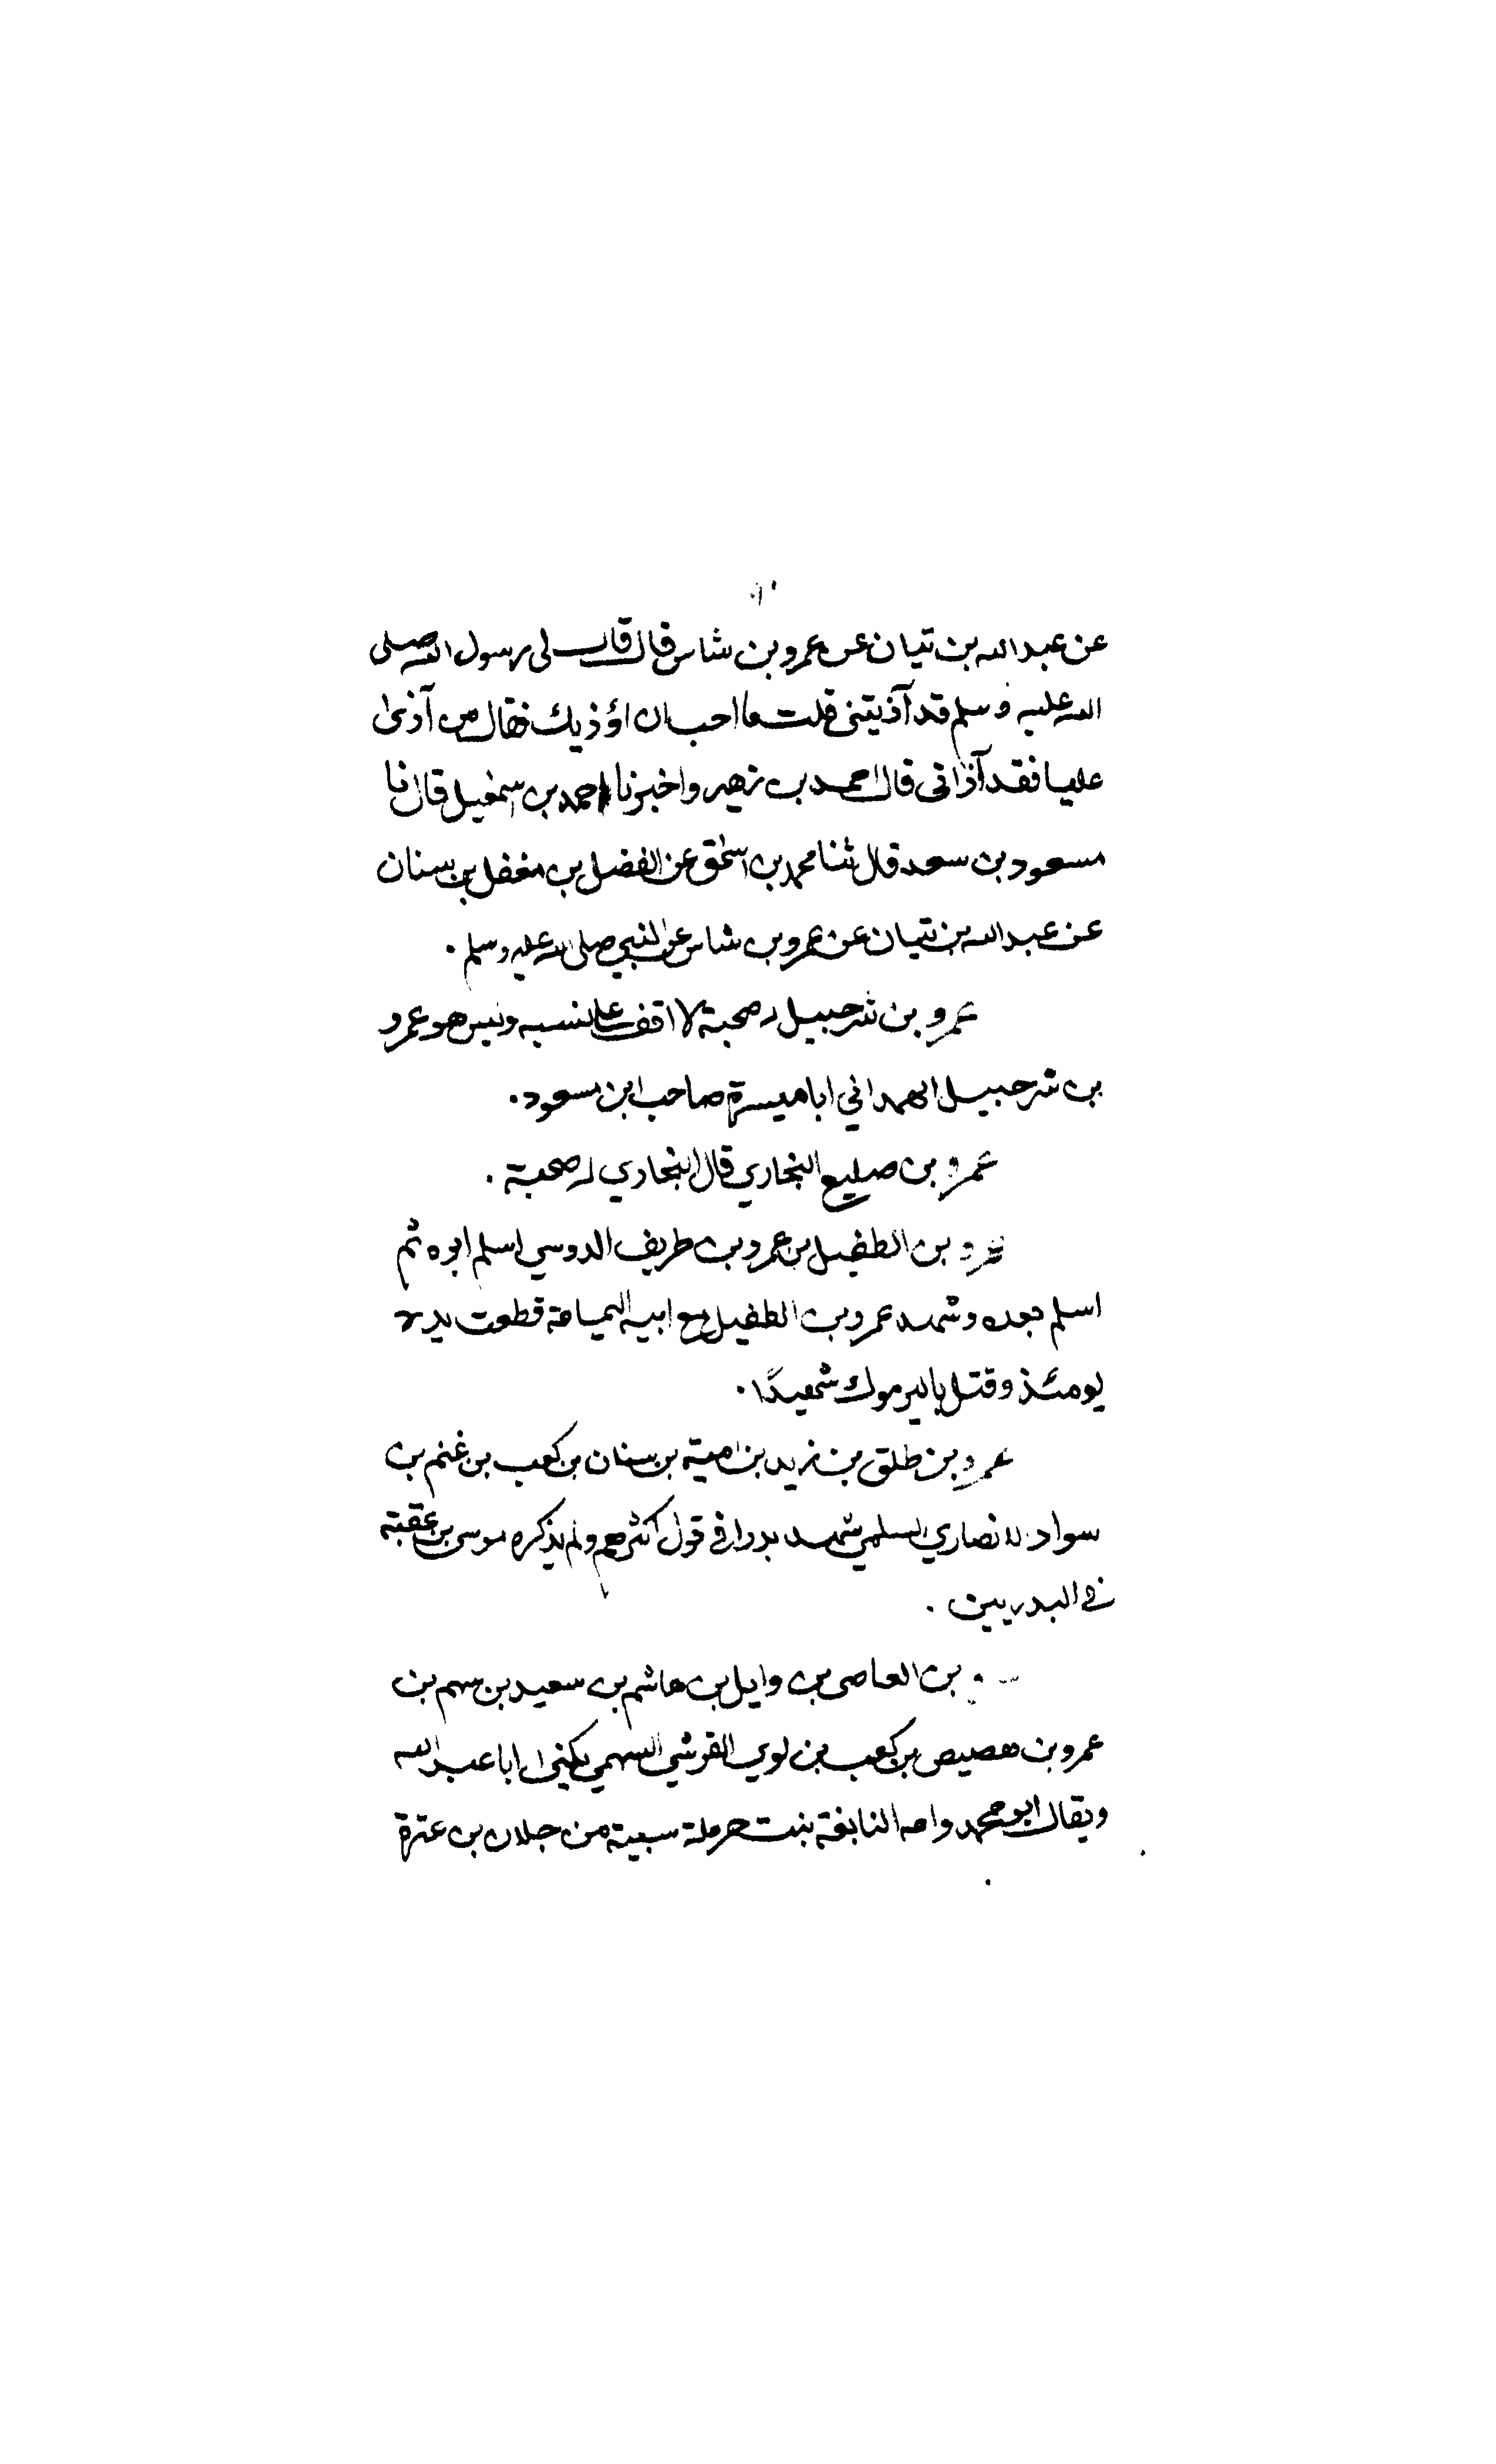 عن عبد الله بن تيان عن عمرو بن شاس قال قال لى رسول الله صلى
الله عليه وسلم قد آذيتنى قلت ما احب ان اؤذيك فقال من آذى
عليا فقد آذانى قال احمد بن زهير واخبرنا احمد بن اسمعيل قال نا
مسعود بن سعد قال ثنا محمد بن اسحق عن الفضل بن مغفل بن سنان
عن عبد الله بن تيان عن عمرو بن شاس عن النبي صلى الله عليه وسلم .
عمرو بن شرحبيل له صحبة لا اقف على نسبه وليس هو عمرو
بن شرحبيل الهمداني ابا ميسرة صاحب ابن مسعود .
عمرو بن صليع النجاري قال البخاري له صحبة .
عمرو بن الطفيل بن عمرو بن طريف الدوسي اسلم ابوه ثم
اسلم بعده وشهد عمرو بن الطفيل مع ابيه اليمامة قطعت يده
يومئذ وقتل باليرموك شهيدًا .
عمرو بن طلق بن زيد بن امية بن سنان بن كعب بن غنم بن
سواد الانصاري السلمي شهد بدرا في قول اكثرهم ولم يذكره موسى بن عقبة
في البدريين .
بن العاصى بن وايل بن هاشم بن سعيد بن سهم بن
عمرو بن هصيص بن كعب بن لوي القرشي السهمي يكنى ابا عبد الله
ويقال ابو محمد وامه النابغة بنت حرملة سبية من جلان بن عترة